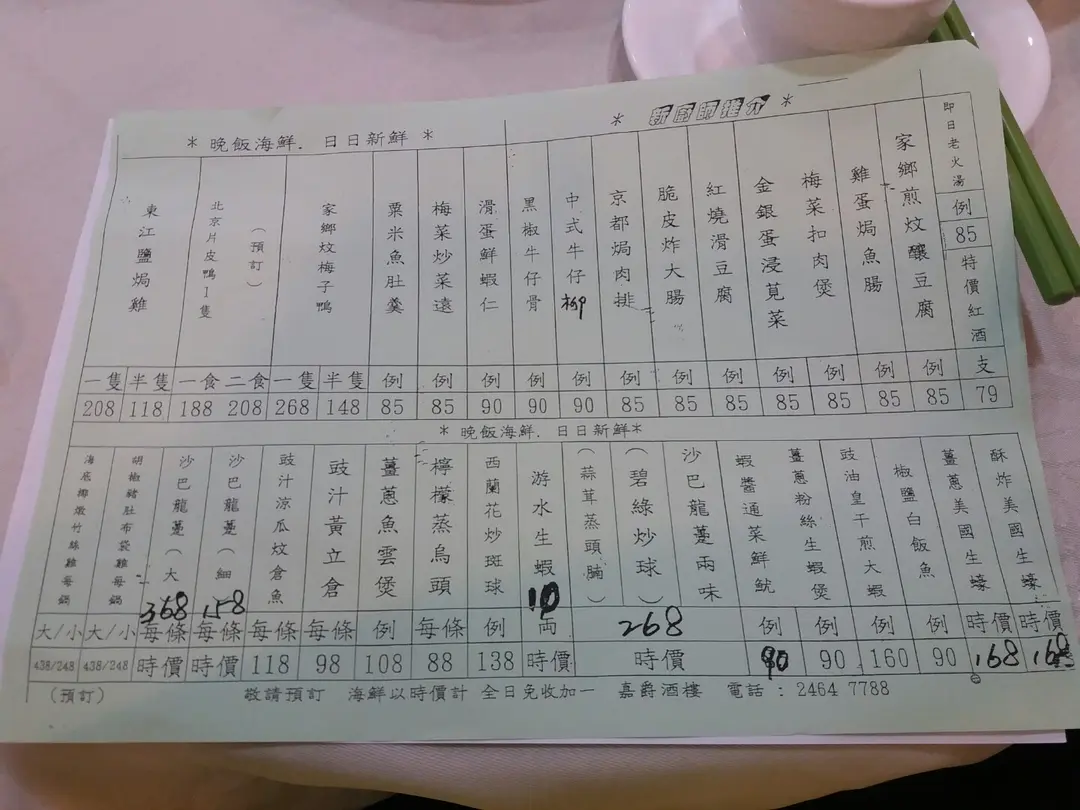 * 新廚師推介 *
即日老火湯
例
85
特價紅酒
支
79
家鄉煎炆釀豆腐
例
85
雞蛋焗魚腸
例
85
梅菜扣肉煲
例
85
金銀蛋浸莧菜
例
85
紅燒滑豆腐
例
85
脆皮炸大腸
例
85
京都焗肉排
例
85
中式牛仔柳
例
90
黑椒牛仔骨
例
90
* 晚飯海鮮. 日日新鮮 *
滑蛋鮮蝦仁
例
90
梅菜炒菜遠
例
85
粟米魚肚羹
例
85
家鄉炆梅子鴨
一隻 半隻
268 148
(預訂)
北京片皮鴨1隻
一食 二食
188 208
東江鹽焗雞
一隻 半隻
208 118
* 晚飯海鮮. 日日新鮮*
酥炸美國生蠔
時價
168
薑蔥美國生蠔
時價
168
椒鹽白飯魚
例
90
豉油皇干煎大蝦
例
160
薑蔥粉絲生蝦煲
例
90
蝦醬通菜鮮魷
例
90
沙巴龍躉兩味
(碧綠炒球)
(蒜茸蒸頭腩)
268
時價
游水生蝦
10
両
時價
西蘭花炒斑球
例
138
檸檬蒸烏頭
每條
88
薑蔥魚雲煲
例
108
豉汁黃立倉
每條
98
豉汁涼瓜炆倉魚
每條
118
沙巴龍躉(細)
158
每條
時價
沙巴龍躉(大)
368
每條
時價
胡椒豬肚布袋雞每鍋
大/小
438/248
海底椰燉竹絲雞每鍋
大/小
438/248
(預訂) 敬請預訂 海鮮以時價計 全日免收加一 嘉爵酒樓 電話 : 2464 7788